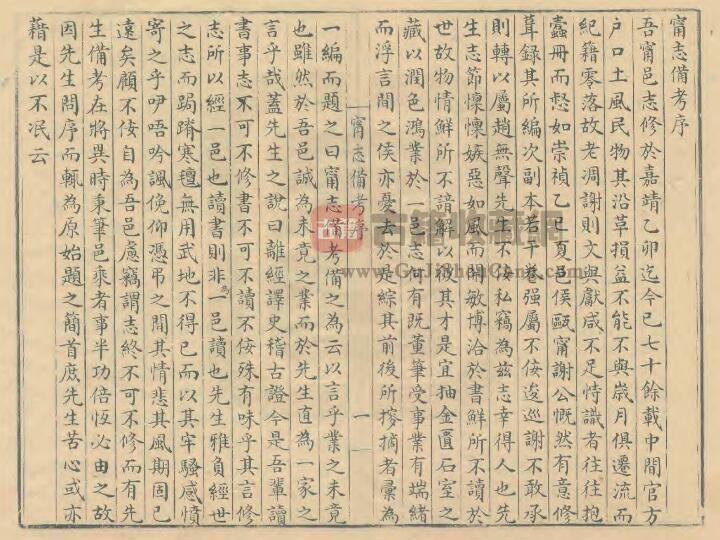 甯志備考序
吾甯邑志修於嘉靖乙卯迄今已七十餘載中間官方
戶口土風民物其沿革損益不能不與歲月俱遷流而
紀籍零落故老凋謝則文與獻咸不足恃識者往往抱
蠹冊而慭如崇禎乙巳夏邑侯甌甯謝公慨然有意修
葺録其所編次副本若干卷强屬不佞逡巡謝不敢承
則轉以屬趙無聲先生不佞私竊為兹志幸得人也先
生志節懍懍嫉惡如風而閎敏博洽於書鮮所不讀於
世故物情鮮所不諳解以彼其才是宜抽金匱石室之
藏以潤色鴻業於一邑志何有既董筆受事業有端緒
而浮言間之侯亦憂去於是綜其前後所摉摘者彙為
甯志備考序
一
一編而題之曰甯志備考備之為云以言乎業之未竟
也雖然於吾邑誠為未竟之業而於先生直為一家之
言乎哉蓋先生之說曰離經譯史稽古證今是吾輩讀
書事志不可不修書不可不讀不佞殊有味乎其言修
志所以經一邑也讀書則非為一邑讀也先生雅負經世
之志而跼蹐寒氊無用武地不得已而以其牢騷感憤
寄之乎咿唔吟諷俛仰憑弔之間其情悲其風期固已
遠矣顧不佞自為吾邑慮竊謂志終不可不修而有先
生備考在將異時秉筆邑乘者事半功倍恆必由之故
因先生問序而輒為原始題之簡首庶先生苦心或亦
藉是以不泯云
古籍收藏網
www.GuJiShouCang.com